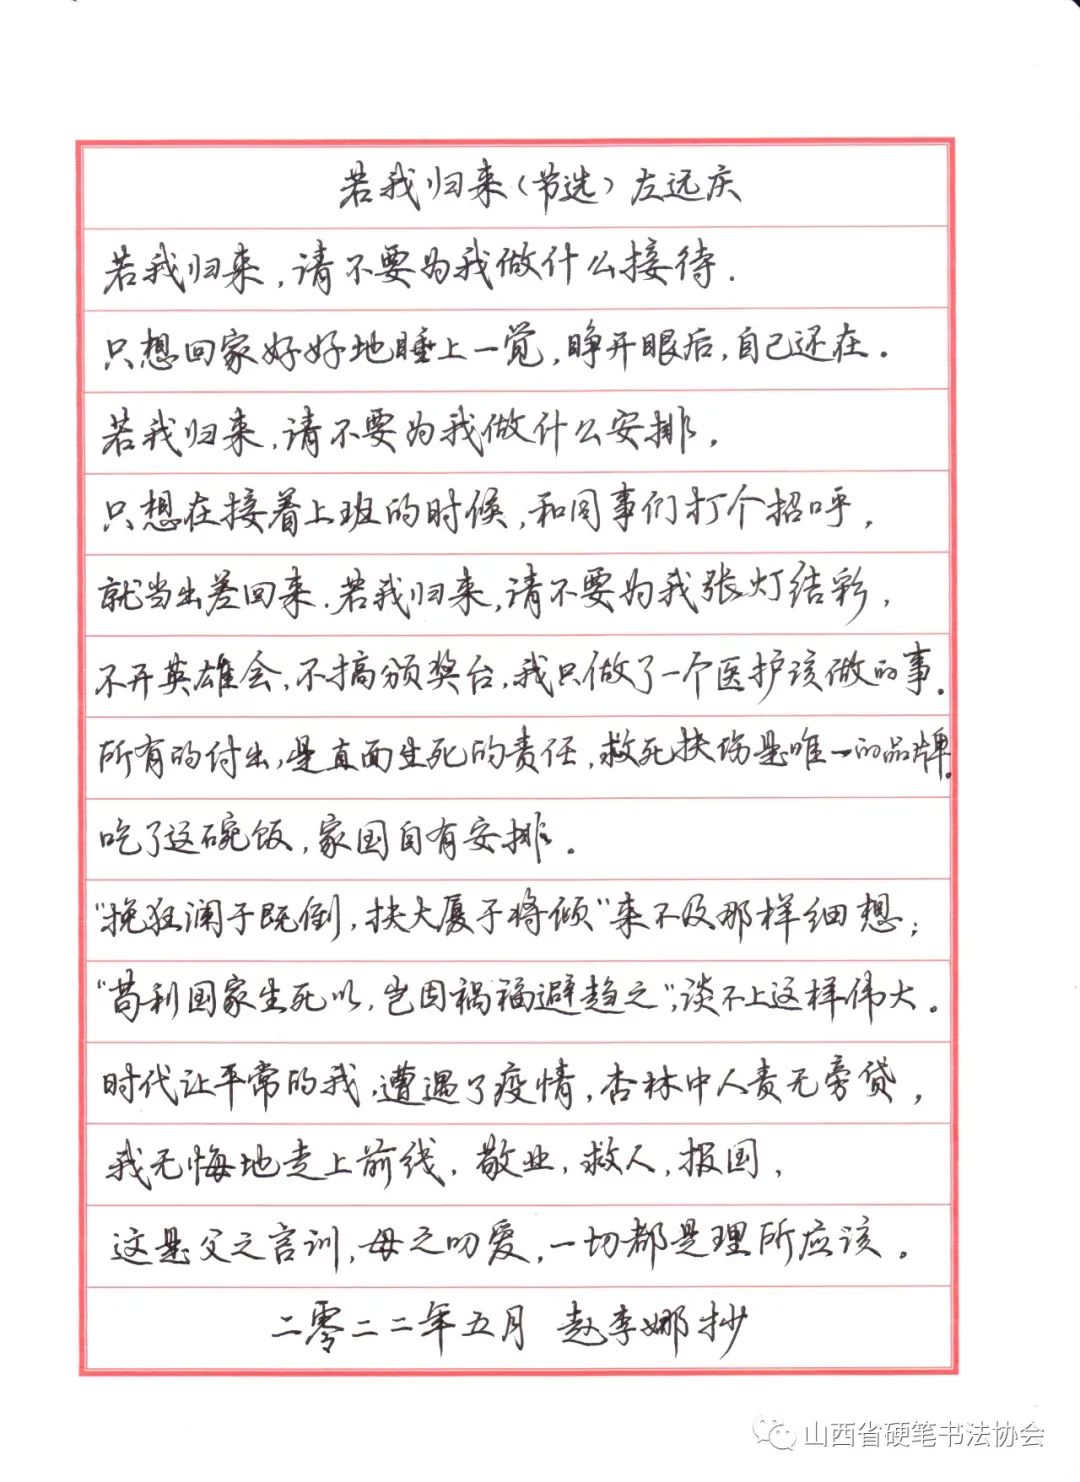 若我归来（节选）左远庆
若我归来,请不要为我做什么接待.
只想回家好好地睡上一觉,睁开眼后,自己还在。
若我归来,请不要为我做什么安排。
只想在接着上班的时候,和同事们打个招呼,
就当出差回来.若我归来,请不要为我张灯结彩,
不开英雄会,不搞颁奖台,我只做了一个医护该做的事.
所有的付出,是直面生死的责任,救死扶伤是唯一的品牌。
吃了这碗饭,家国自有安排。
“挽狂澜于既倒,扶大厦于将倾”来不及那样细想;
“苟利国家生死以,岂因祸福避趋之”,谈不上这样伟大。
时代让平常的我,遭遇了疫情,杏林中人责无旁贷,
我无悔地走上前线,敬业,救人,报国,
这是父之言训,母之叨爱,一切都是理所应该。
二零二二年五月 赵李娜抄
山西省硬笔书法协会